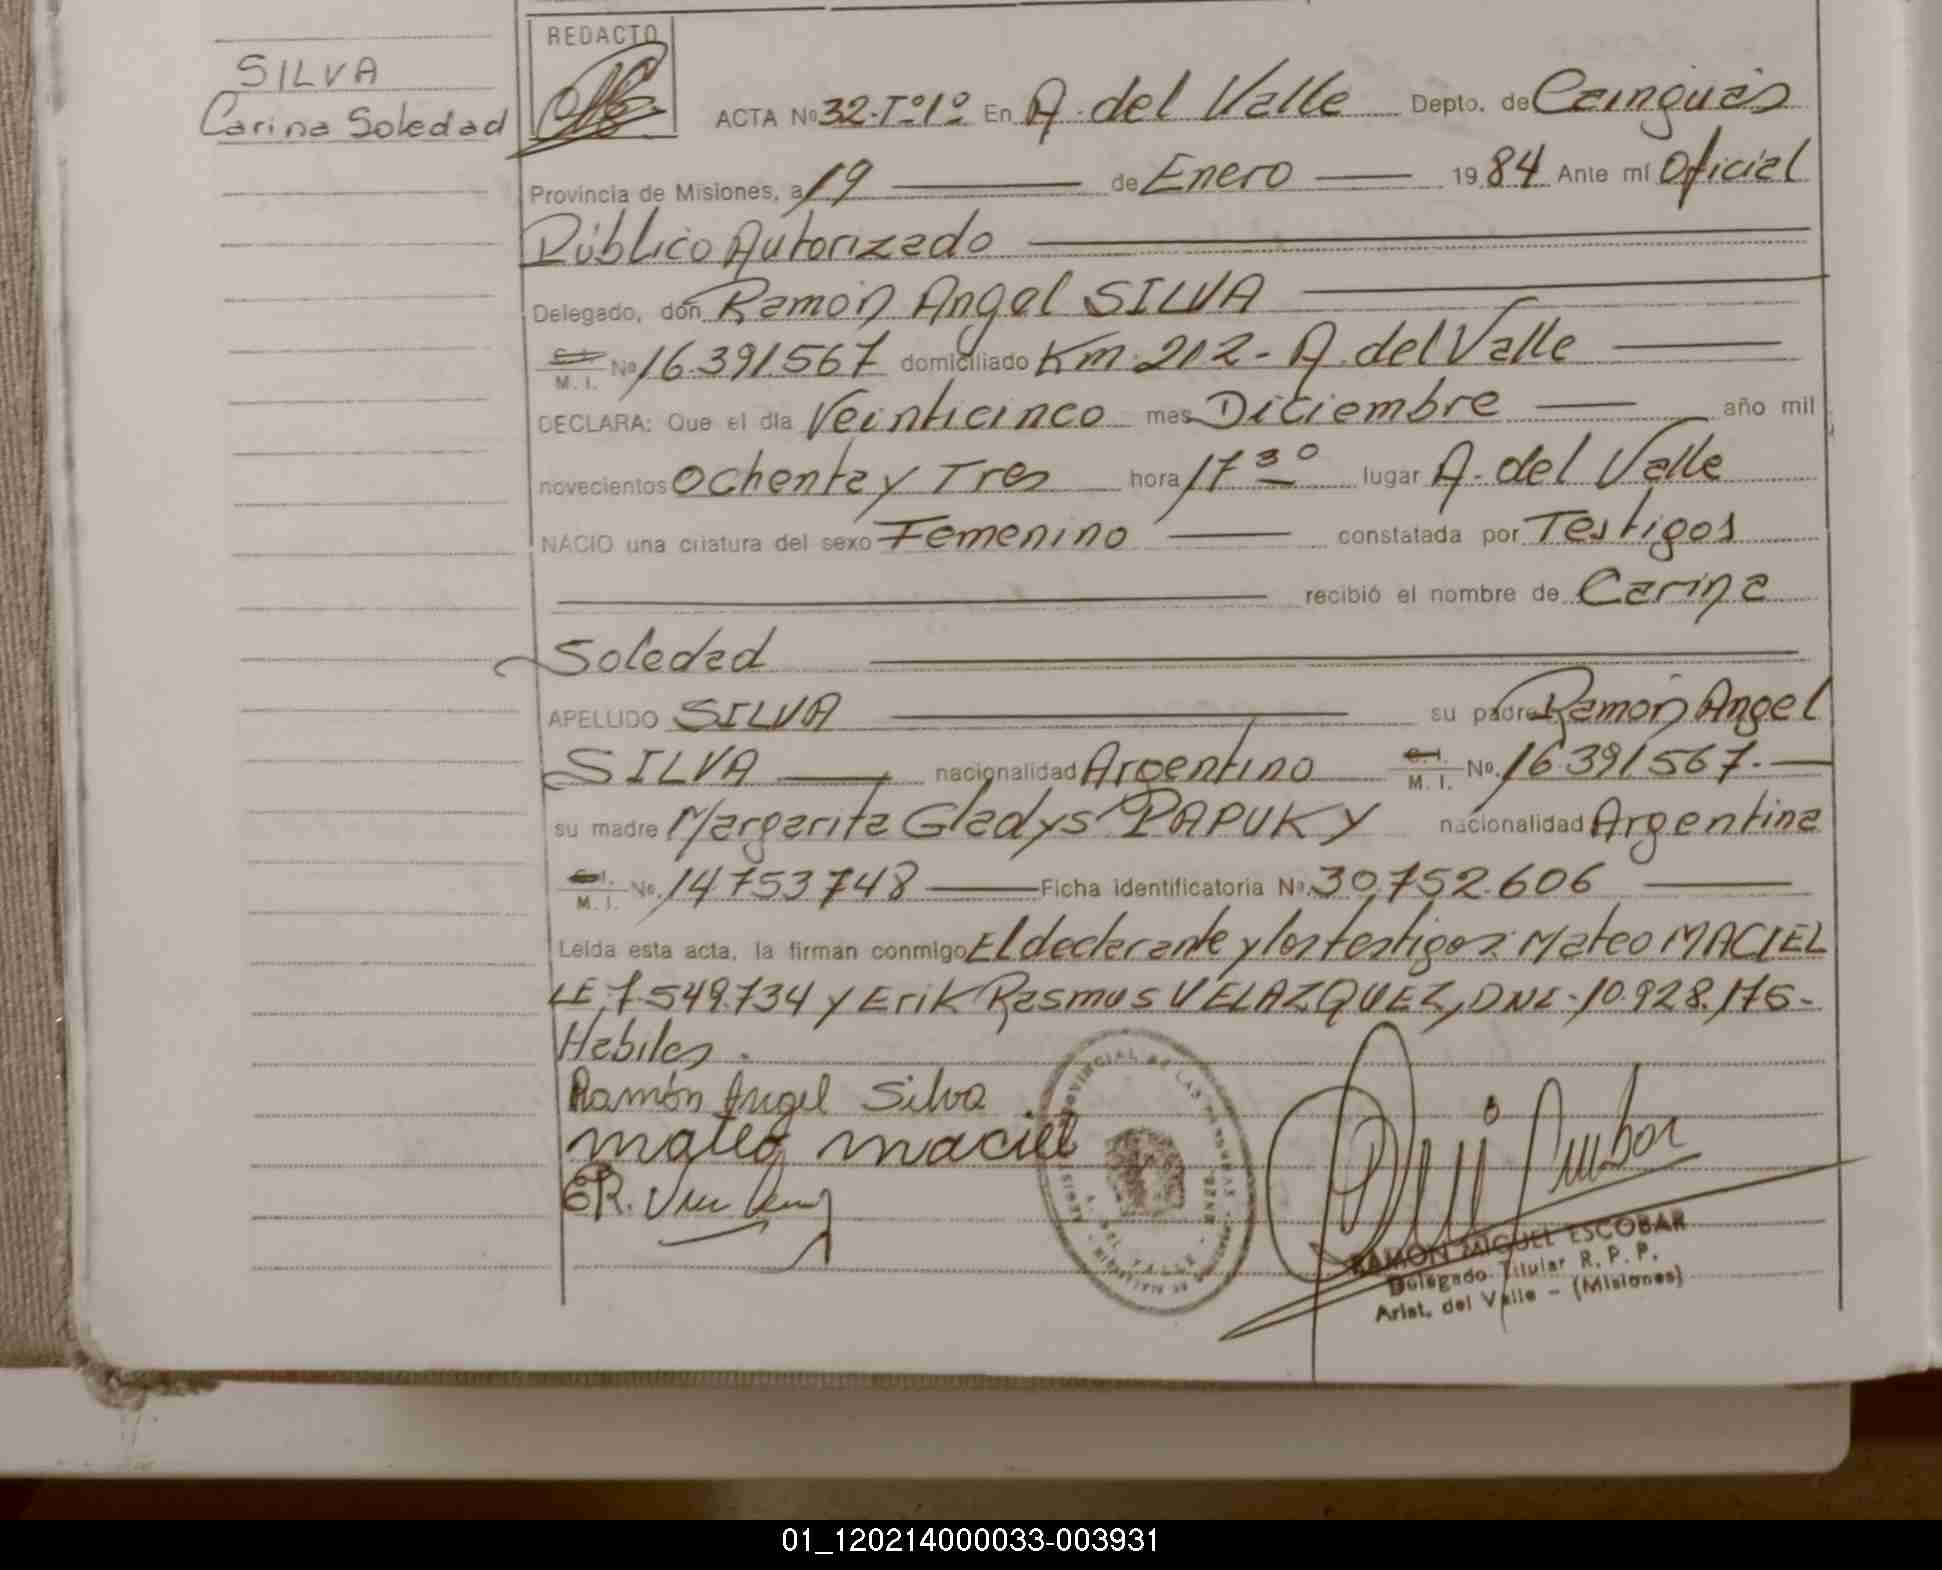 SILVA
Carina Soledad
REDACTO
ACTA Nº 32-Tº1º En A. del Valle Depto. de Cainguás
Provincia de Misiones, a 19 de Enero 1984 Ante mí Oficial
Público Autorizado
Delegado, don Ramón Angel SILVA
C. I. M. I. Nº 16.391.567 domiciliado Km. 212 - A. del Valle
DECLARA: Que el día Veinticinco mes Diciembre año mil
novecientos Ochenta y Tres hora 17 30 lugar A. del Valle
NACIO una criatura del sexo Femenino constatada por Testigos
recibió el nombre de Carina
Soledad
APELLIDO SILVA su padre Ramón Angel
SILVA nacionalidad Argentino C. I. M. I. Nº. 16.391.567.
su madre Margarita Gladys PAPUKY nacionalidad Argentina
C. I. M. I. Nº. 14.753.748 Ficha identificatoria Nº. 30.752.606
Leída esta acta, la firman conmigo El declarante y los testigos: Mateo MACIEL
LE. 7.549.734 y Erik Rasmus VELAZQUEZ, DNI. 10.928.176-
Habiles.
Ramón Angel Silva
mateo maciel
ER.
RAMON MIGUEL ESCOBAR
Delegado Titular R. P. P.
Arist. del Valle - (Misiones)
01_120214000033-003931